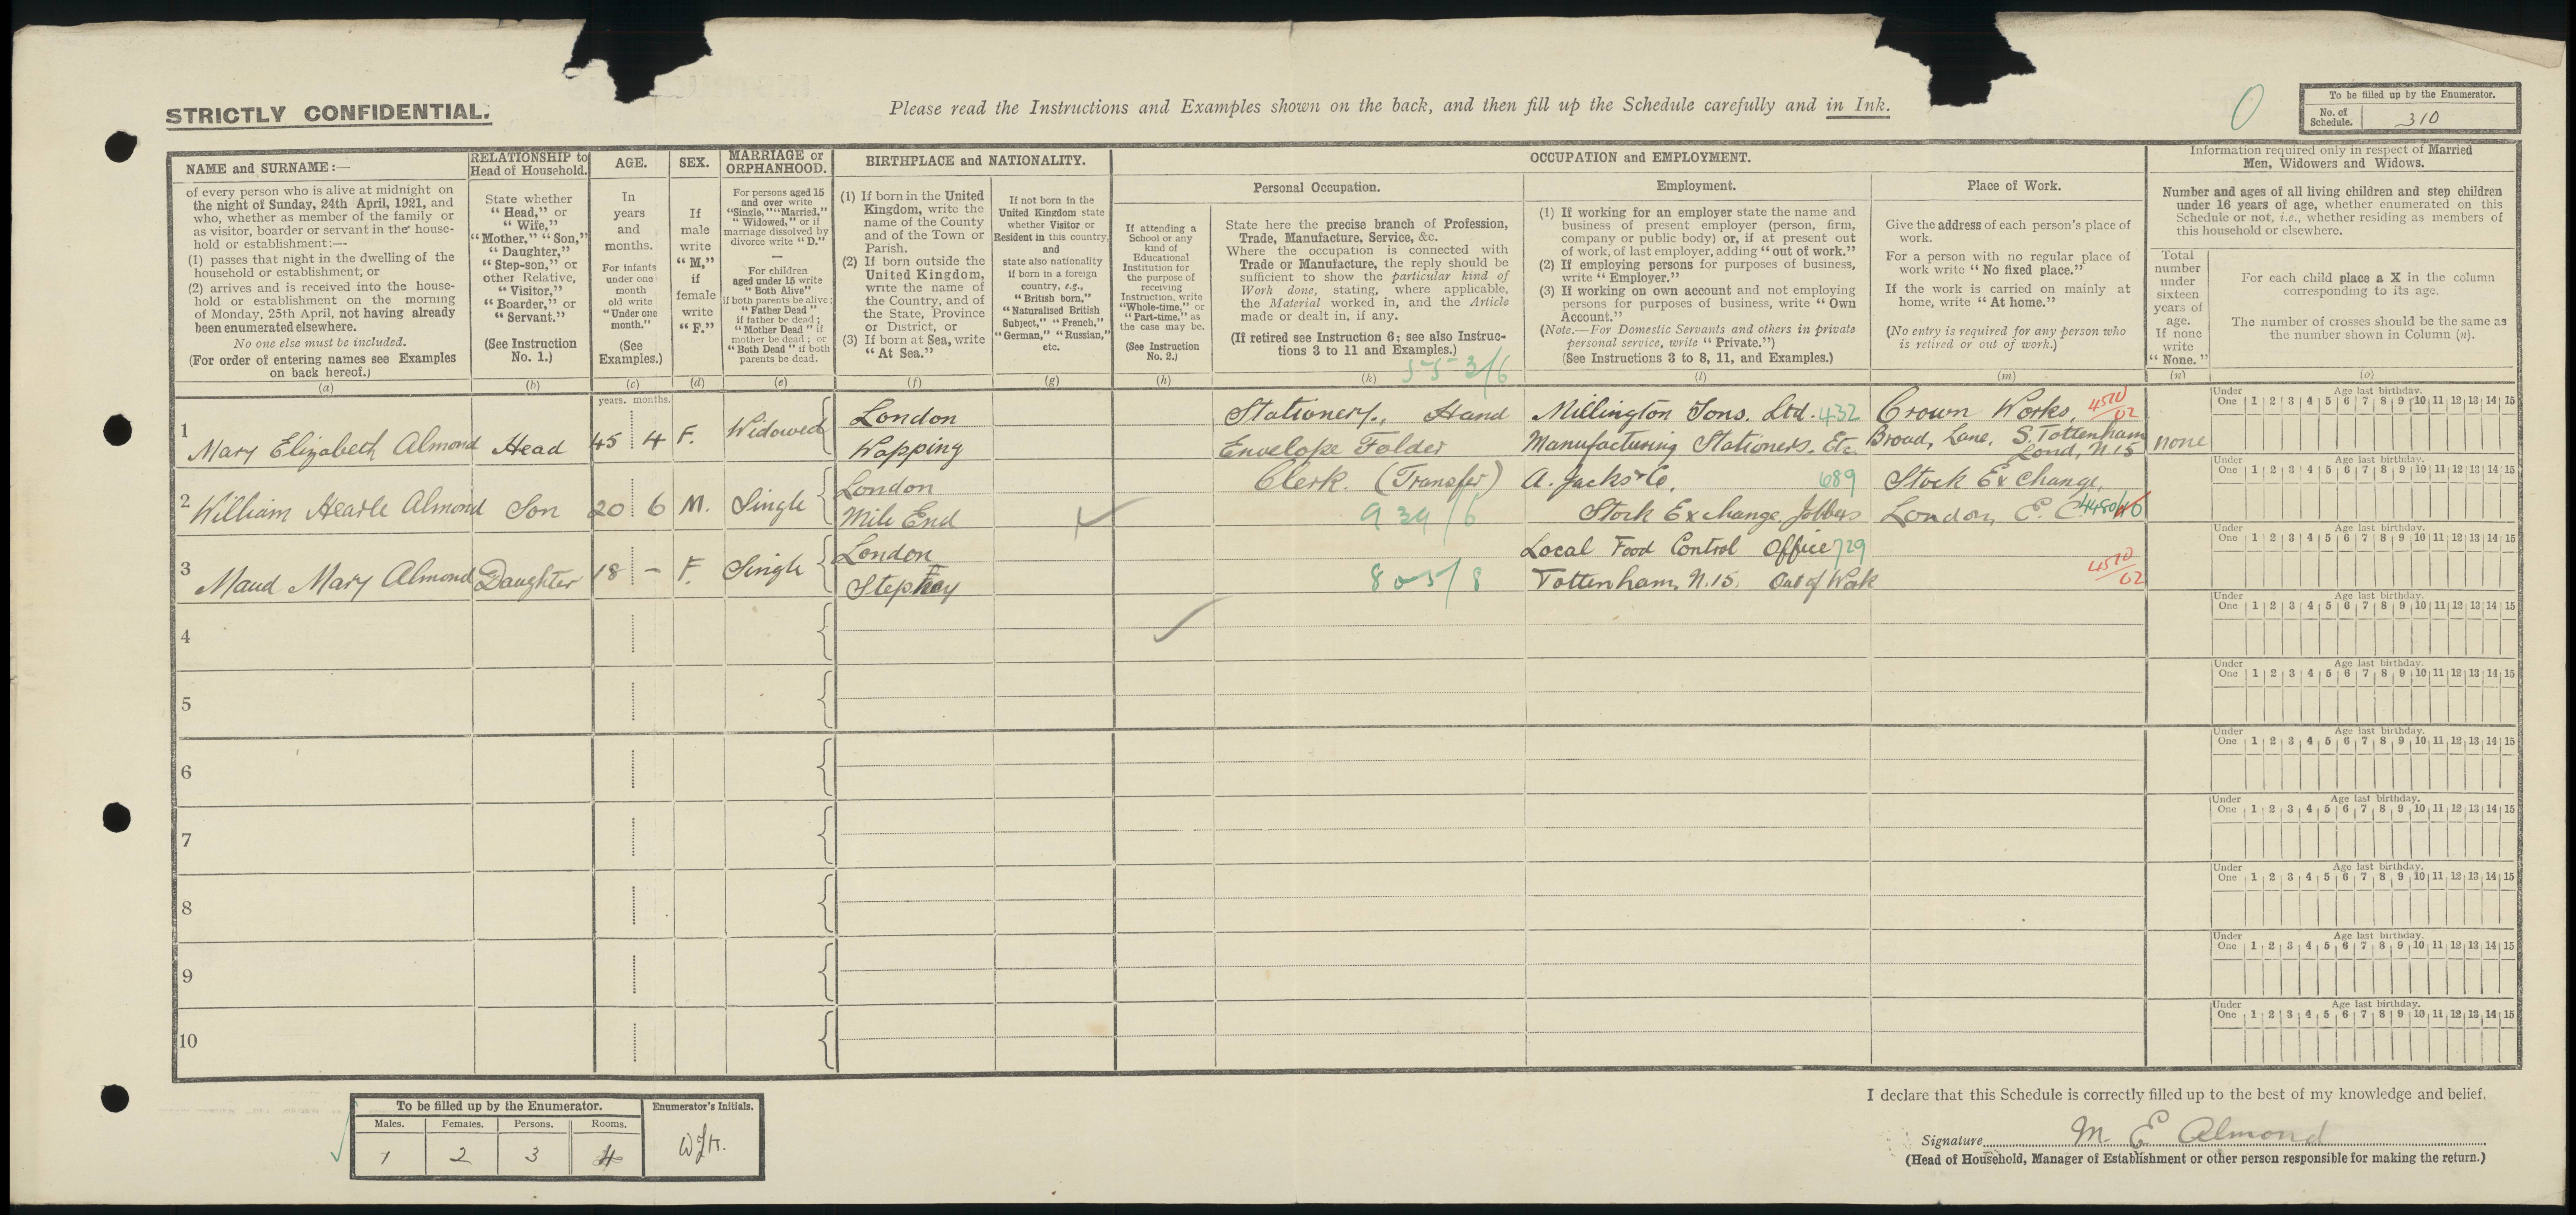 STRICTLY CONFIDENTIAL.
Please read the Instructions and Examples shown on the back, and then fill up the Schedule carefully and in Ink.
0
To be filled up by the Enumerator.
No. of Schedule. 310
NAME and SURNAME:—
of every person who is alive at midnight on
the night of Sunday, 24th April, 1921, and
who, whether as member of the family or
as visitor, boarder or servant in the house-
hold or establishment:—
(1) passes that night in the dwelling of the
household or establishment; or
(2) arrives and is received into the house-
hold or establishment on the morning
of Monday, 25th April, not having already
been enumerated elsewhere.
No one else must be included.
(For order of entering names see Examples
on back hereof.)
(a)
RELATIONSHIP to
Head of Household.
State whether
"Head," or
"Wife,"
"Mother," "Son,"
"Daughter,"
"Step-son," or
other Relative,
"Visitor,"
"Boarder," or
"Servant."
(See Instruction
No. 1.)
(b)
AGE.
In
years
and
months.
For infants
under one
month
old write
"Under one
month."
(See
Examples.)
(c)
SEX.
If
male
write
"M,"
if
female
write
"F."
(d)
MARRIAGE or
ORPHANHOOD.
For persons aged 15
and over write
"Single," "Married,"
"Widowed," or if
marriage dissolved by
divorce write "D."
—
For children
aged under 15 write
"Both Alive"
if both parents be alive;
"Father Dead"
if father be dead;
"Mother Dead" if
mother be dead; or
"Both Dead" if both
parents be dead.
(e)
BIRTHPLACE and NATIONALITY.
(1) If born in the United
Kingdom, write the
name of the County
and of the Town or
Parish.
(2) If born outside the
United Kingdom,
write the name of
the Country, and of
the State, Province
or District, or
(3) If born at Sea, write
"At Sea."
(f)
If not born in the
United Kingdom state
whether Visitor or
Resident in this country,
and
state also nationality
if born in a foreign
country, e.g.,
"British born,"
"Naturalised British
Subject," "French,"
"German," "Russian,"
etc.
(g)
OCCUPATION and EMPLOYMENT.
If attending a
School or any
kind of
Educational
Institution for
the purpose of
receiving
Instruction, write
"Whole-time," or
"Part-time," as
the case may be.
(See Instruction
No. 2.)
(h)
Personal Occupation.
State here the precise branch of Profession,
Trade, Manufacture, Service, &c.
Where the occupation is connected with
Trade or Manufacture, the reply should be
sufficient to show the particular kind of
Work done, stating, where applicable,
the Material worked in, and the Article
made or dealt in, if any.
(If retired see Instruction 6; see also Instruc-
tions 3 to 11 and Examples.)
(k) 553/6
Employment.
(1) If working for an employer state the name and
business of present employer (person, firm,
company or public body) or, if at present out
of work, of last employer, adding "out of work."
(2) If employing persons for purposes of business,
write "Employer."
(3) If working on own account and not employing
persons for purposes of business, write "Own
Account."
(Note.—For Domestic Servants and others in private
personal service, write "Private.")
(See Instructions 3 to 8, 11, and Examples.)
(l)
Place of Work.
Give the address of each person's place of
work.
For a person with no regular place of
work write "No fixed place."
If the work is carried on mainly at
home, write "At home."
(No entry is required for any person who
is retired or out of work.)
(m)
Information required only in respect of Married
Men, Widowers and Widows.
Number and ages of all living children and step children
under 16 years of age, whether enumerated on this
Schedule or not, i.e., whether residing as members of
this household or elsewhere.
Total
number
under
sixteen
years of
age.
If none
write
"None."
(n)
For each child place a X in the column
corresponding to its age.
The number of crosses should be the same as
the number shown in Column (n).
(o)
years. months.
Under One Age last birthday. 1 2 3 4 5 6 7 8 9 10 11 12 13 14 15
1 Mary Elizabeth Almond Head 45 4 F. Widowed London Wapping Stationery, Hand Envelope Folder Millington Sons. Ltd. 432 Manufacturing Stationers. Etc. Crown Works, Broad, Lane, S. Tottenham Lond, N.15 4510/02 none
Under One Age last birthday. 1 2 3 4 5 6 7 8 9 10 11 12 13 14 15
2 William Hearle Almond Son 20 6 M. Single London Mile End Clerk. (Transfer) 939/6 A. Jacks & Co, 689 Stock Exchange Jobbers Stock Exchange, London, E.C
Under One Age last birthday. 1 2 3 4 5 6 7 8 9 10 11 12 13 14 15
3 Maud Mary Almond Daughter 18 – F. Single London Stepney 805/8 Local Food Control Office 729 Tottenham, N.15. Out of Work 4510/02
Under One Age last birthday. 1 2 3 4 5 6 7 8 9 10 11 12 13 14 15
4
Under One Age last birthday. 1 2 3 4 5 6 7 8 9 10 11 12 13 14 15
5
Under One Age last birthday. 1 2 3 4 5 6 7 8 9 10 11 12 13 14 15
6
Under One Age last birthday. 1 2 3 4 5 6 7 8 9 10 11 12 13 14 15
7
Under One Age last birthday. 1 2 3 4 5 6 7 8 9 10 11 12 13 14 15
8
Under One Age last birthday. 1 2 3 4 5 6 7 8 9 10 11 12 13 14 15
9
Under One Age last birthday. 1 2 3 4 5 6 7 8 9 10 11 12 13 14 15
10
To be filled up by the Enumerator.
Males. Females. Persons. Rooms.
1 2 3 4
Enumerator's Initials.
I declare that this Schedule is correctly filled up to the best of my knowledge and belief.
Signature M E Almond
(Head of Household, Manager of Establishment or other person responsible for making the return.)